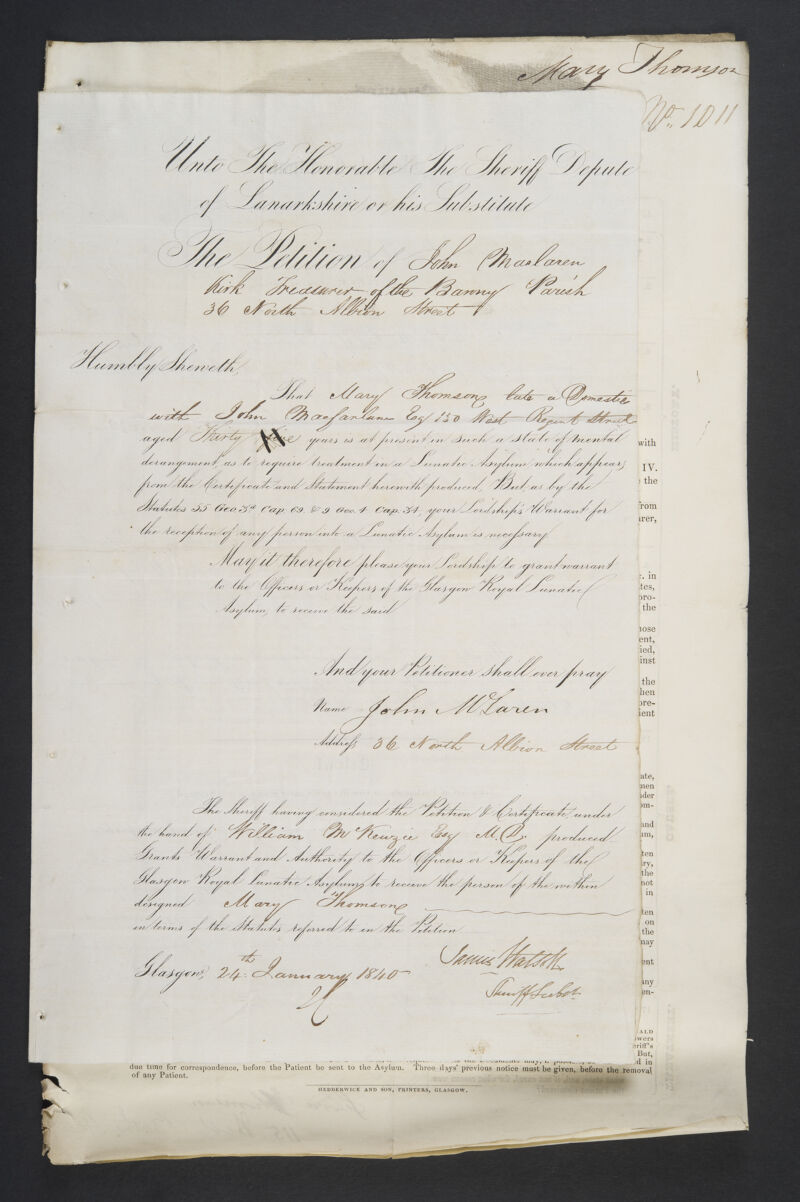 Mary Thomson
No. 1011
Unto The Honorable The Sheriff Depute
of Lanarkshire or his Substitute
The Petition of John Maclaren
Kirk Treasurer of the Barony Parish
36 North Albion Street
Humbly Sheweth,
That Mary Thomson late a Domestic
with John Macfarlane Esq 130 West Regent Street
aged Thirty five years is at present in such a state of mental
derangement as to require treatment in a Lunatic Asylum which appears
from the Certificate and Statement herewith produced. But as by the
Statutes 55 Geo. 3d Cap. 69. & 9 Geo. 4 Cap. 34. your Lordship's Warrant for
the reception of any person into a Lunatic Asylum is necessary
May it therefore please your Lordship to grant warrant
to the Officers or Keepers of the Glasgow Royal Lunatic
Asylum, to receive the said
And your Petitioner shall ever pray
Name John McLaren
Address 36 North Albion Street
The Sheriff having considered the Petition & Certificate under
the hand of William McKenzie Esq M.D. produced
Grants Warrant and Authority to the Officers or Keepers of the
Glasgow Royal Lunatic Asylum, to receive the person of the within
designed Mary Thomson
in terms of the Statutes referred to in the Petition
Glasgow, 24th January 1840
Sheriff Subst.
due time for correspondence, before the Patient be sent to the Asylum. Three days' previous notice must be given, before the removal
of any Patient.
HEDDERWICK AND SON, PRINTERS, GLASGOW.